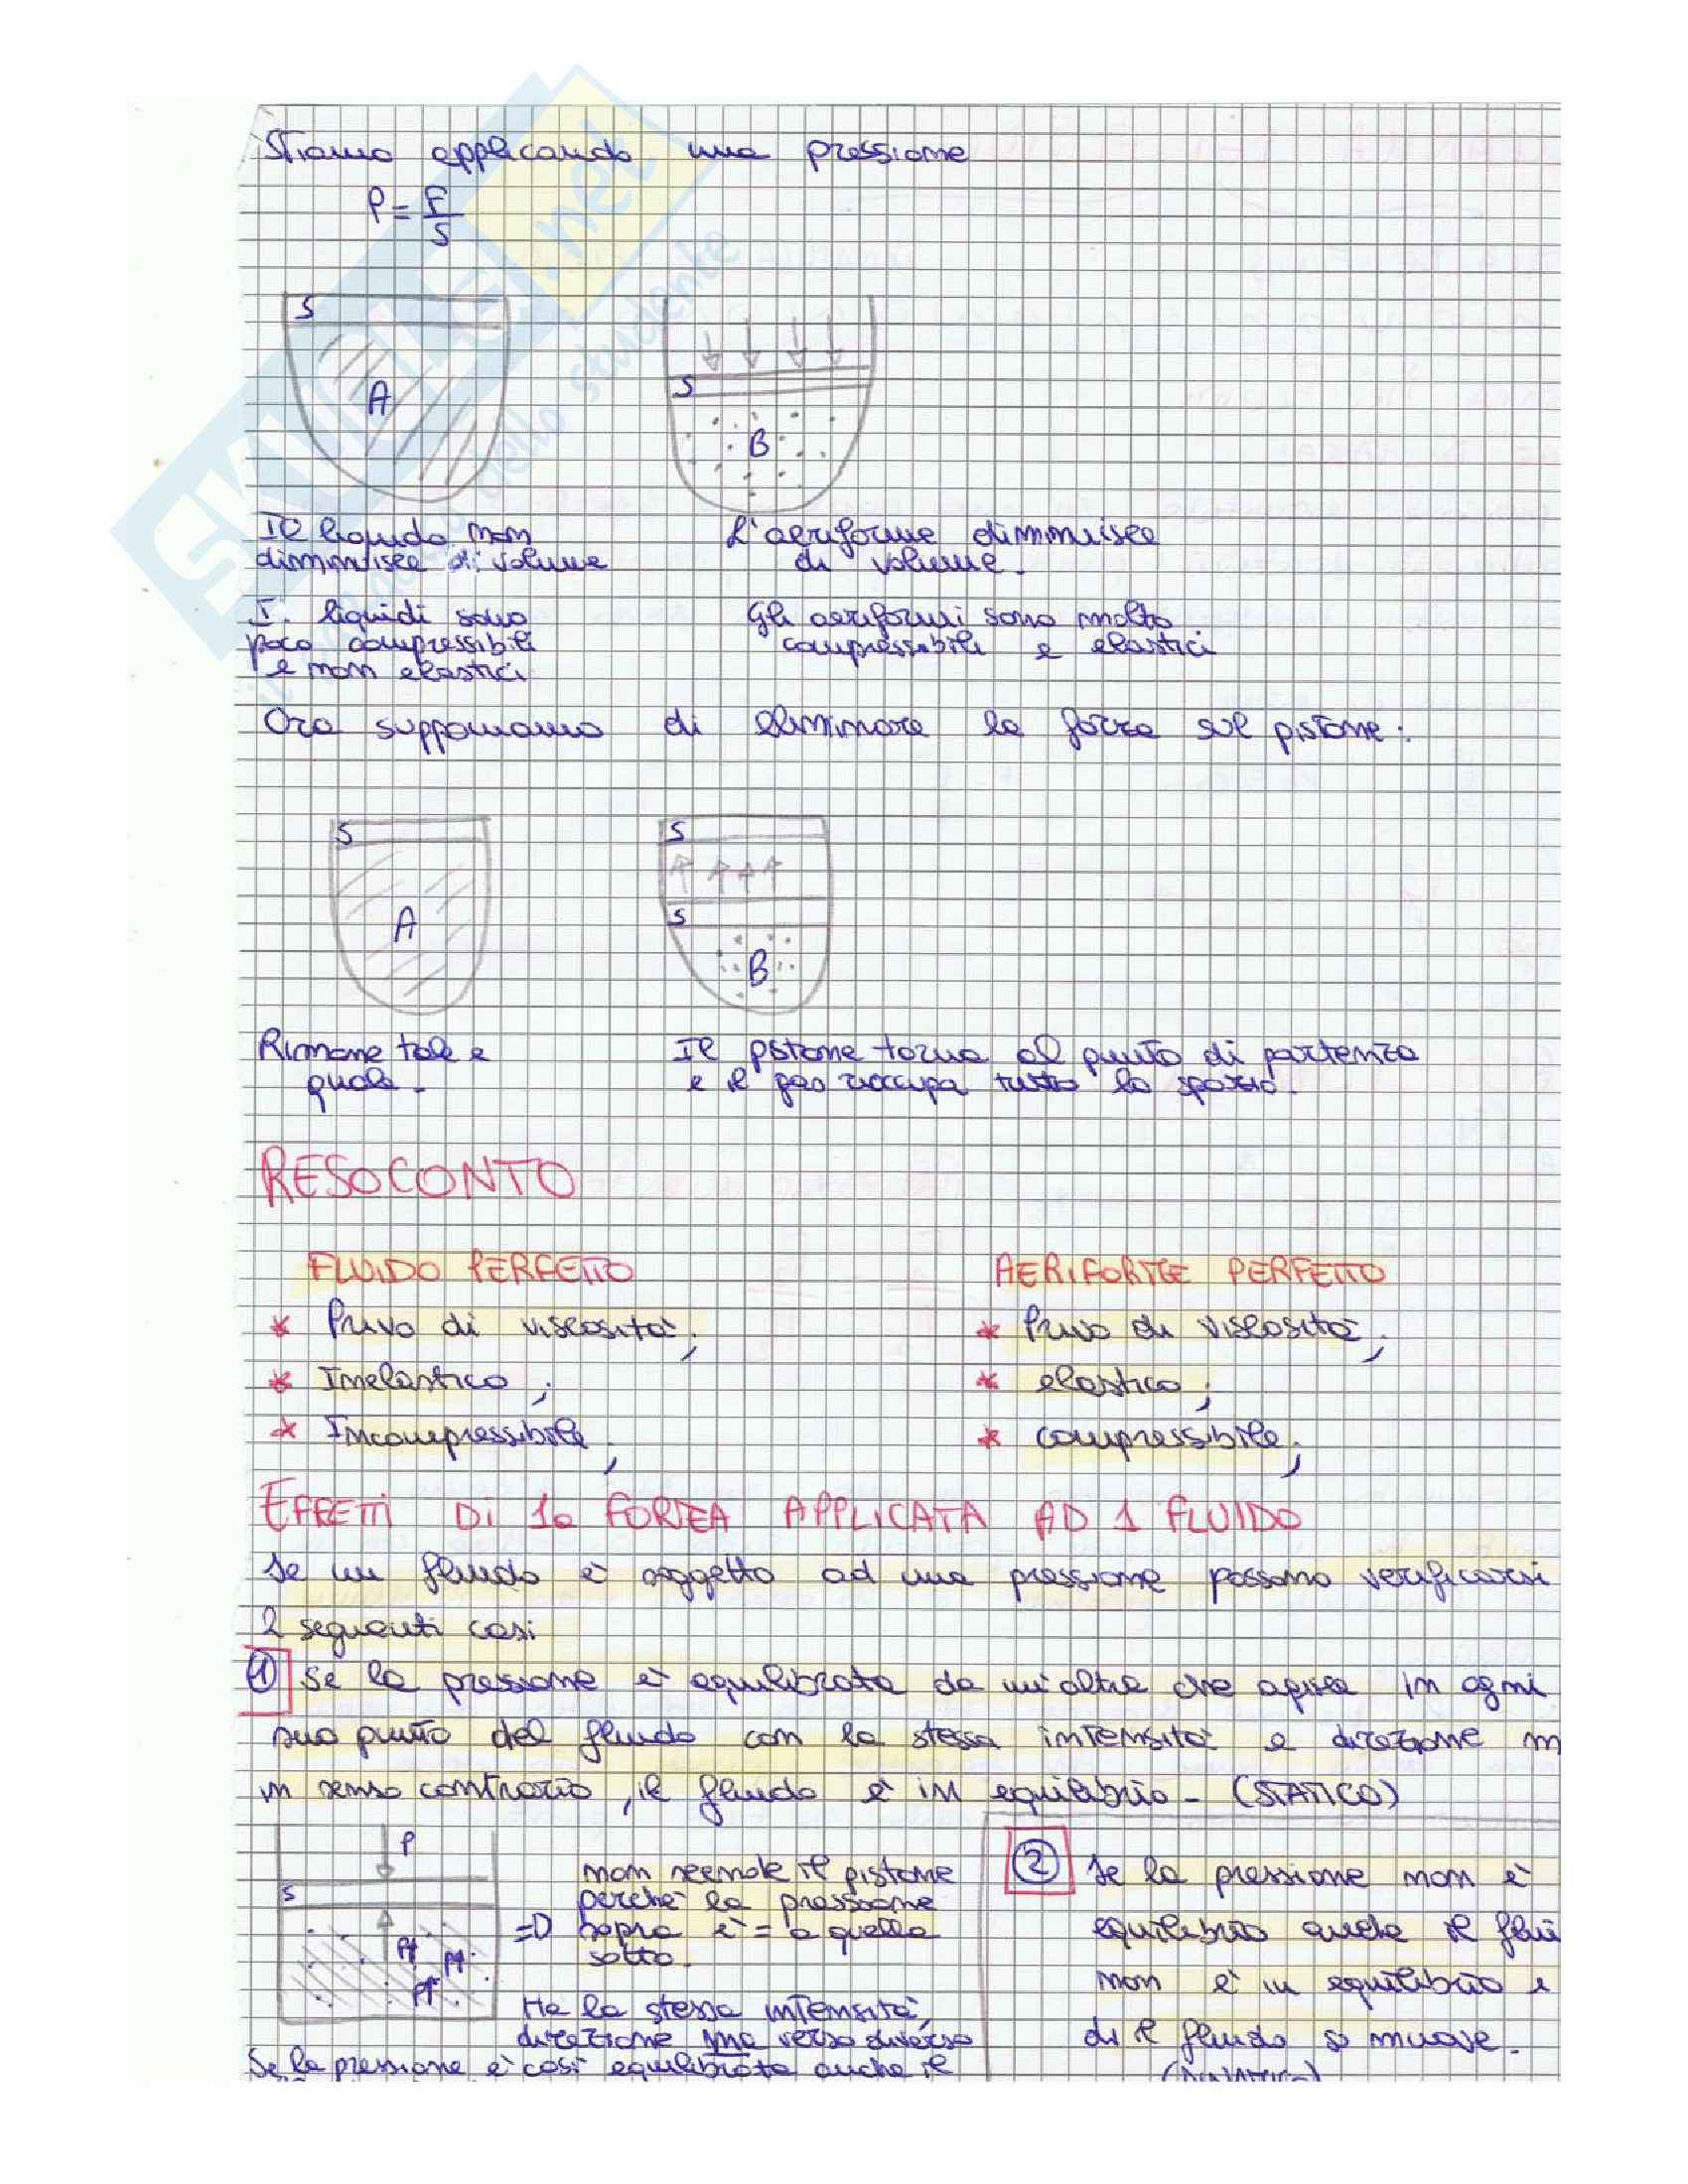 Stiamo applicando una pressione
P = F
S
S
A
S
B
Il liquido non
diminuisce di volume
L'aeriforme diminuisce
di volume.
I liquidi sono
poco compressibili
e non elastici
Gli aeriformi sono molto
compressibili e elastici
Ora supponiamo di eliminare la forza sul pistone:
S
A
S
S
B
Rimane tale e
quale.
Il pistone torna al punto di partenza
e il gas rioccupa tutto lo spazio.
RESOCONTO
FLUIDO PERFETTO
* Privo di viscosità;
* Inelastico;
* Incompressibile;
AERIFORME PERFETTO
* Privo di viscosità;
* elastico;
* compressibile;
EFFETTI Di 1a FORZA APPLICATA AD 1 FLUIDO
Se un fluido è soggetto ad una pressione possono verificarsi
2 seguenti casi
1 Se la pressione è equilibrata da un'altra che agisce in ogni
suo punto del fluido con la stessa intensità e direzione m
in senso contrario, il fluido è in equilibrio - (STATICO)
P
S
P1
P1
P1
non scende il pistone
perchè la pressione
=D sopra è = a quella
sotto.
Ha la stessa intensità,
direzione ma verso diverso
Se la pressione è così equilibrata anche il
2 Se la pressione non è
equilibrio anche il flui
non è in equilibrio e
di il fluido si muove.
SKUOLA.net
dello studente